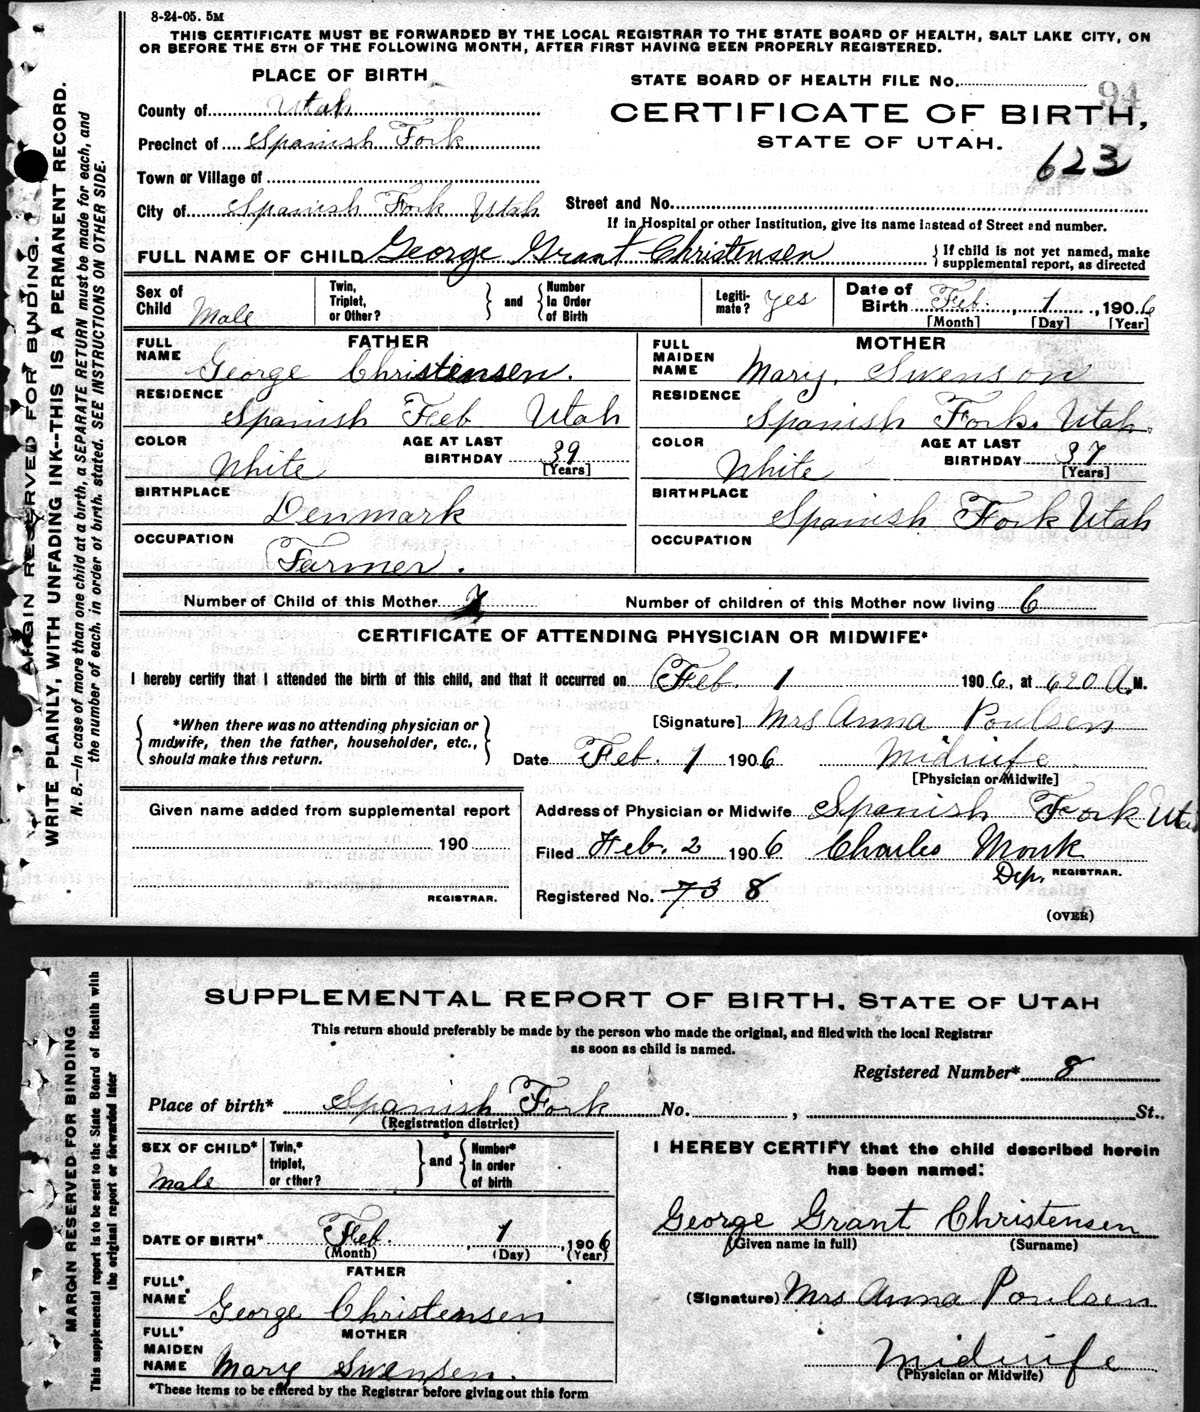 8-24-05. 5M
THIS CERTIFICATE MUST BE FORWARDED BY THE LOCAL REGISTRAR TO THE STATE BOARD OF HEALTH, SALT LAKE CITY, ON
OR BEFORE THE 5TH OF THE FOLLOWING MONTH, AFTER FIRST HAVING BEEN PROPERLY REGISTERED.
MARGIN RESERVED FOR BINDING.
WRITE PLAINLY, WITH UNFADING INK--THIS IS A PERMANENT RECORD.
N. B.--In case of more than one child at a birth, a SEPARATE RETURN must be made for each, and
the number of each, in order of birth, stated. SEE INSTRUCTIONS ON OTHER SIDE.
PLACE OF BIRTH
STATE BOARD OF HEALTH FILE No. 94
County of Utah
CERTIFICATE OF BIRTH,
Precinct of Spanish Fork
STATE OF UTAH.
623
Town or Village of
City of Spanish Fork Utah Street and No.
If in Hospital or other Institution, give its name instead of Street and number.
FULL NAME OF CHILD George Grant Christensen {If child is not yet named, make
supplemental report, as directed
Sex of Child Male
Twin, Triplet, or Other? } and { Number in Order of Birth
Legiti-mate? yes
Date of Birth Feb. 1, 1906
[Month] [Day] [Year]
FATHER
FULL NAME George Christensen.
MOTHER
FULL MAIDEN NAME Mary. Swenson
RESIDENCE Spanish Feb Utah
RESIDENCE Spanish Fork, Utah.
COLOR White AGE AT LAST BIRTHDAY 39 [Years]
COLOR White AGE AT LAST BIRTHDAY 37 [Years]
BIRTHPLACE Denmark
BIRTHPLACE Spanish Fork Utah
OCCUPATION Farmer.
OCCUPATION
Number of Child of this Mother 7 Number of children of this Mother now living 6
CERTIFICATE OF ATTENDING PHYSICIAN OR MIDWIFE*
I hereby certify that I attended the birth of this child, and that it occurred on Feb. 1 1906, at 620 A.M.
{ *When there was no attending physician or
midwife, then the father, householder, etc.,
should make this return. }
[Signature] Mrs Anna Poulsen
Date Feb. 1 1906 Midwife
[Physician or Midwife]
Given name added from supplemental report
190
REGISTRAR.
Address of Physician or Midwife Spanish Fork Utah
Filed Feb. 2 1906 Charles Monk
Dep. REGISTRAR.
Registered No. 73 8
(OVER)
MARGIN RESERVED FOR BINDING
This supplemental report is to be sent to the State Board of Health with
the original report or forwarded later
SUPPLEMENTAL REPORT OF BIRTH, STATE OF UTAH
This return should preferably be made by the person who made the original, and filed with the local Registrar
as soon as child is named.
Registered Number* 8
Place of birth* Spanish Fork No. , St..
(Registration district)
SEX OF CHILD* Male
Twin,* triplet, or other? } and { Number* in order of birth
DATE OF BIRTH* Feb. 1, 1906
(Month) (Day) (Year)
FATHER
FULL* NAME* George Christensen
MOTHER
FULL* MAIDEN NAME Mary Swensen.
*These items to be entered by the Registrar before giving out this form
I HEREBY CERTIFY that the child described herein
has been named:
George Grant Christensen
(Given name in full) (Surname)
(Signature) Mrs Anna Poulsen
Midwife
(Physician or Midwife)